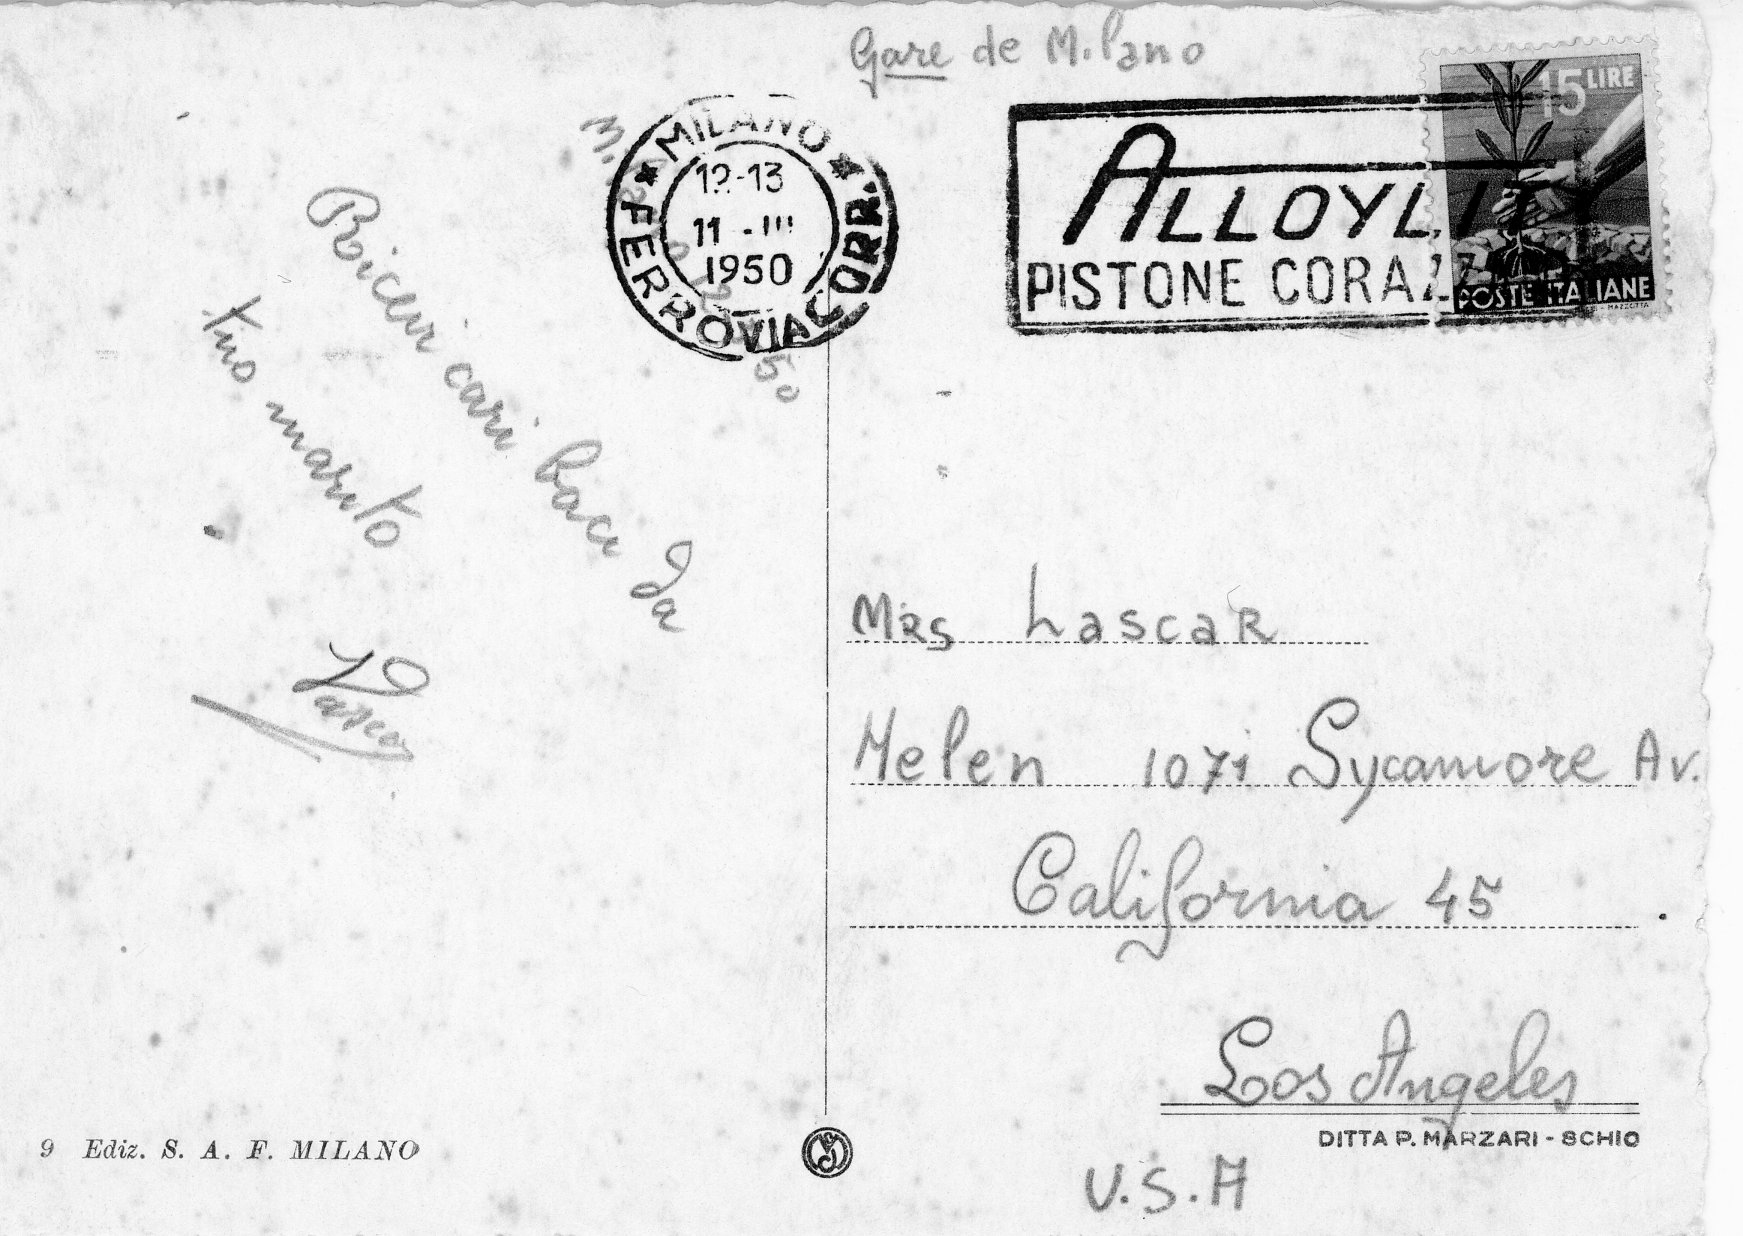 Gare de Milano
15 LIRE
POSTE ITALIANE
MAZZOTTA
MILANO
FERROVIA CORR.
12-13
11 - III
1950
ALLOYLIT
PISTONE CORAZZ
50
Ricevi cari baci da
tuo marito
Mrs Lascar
Helen 1071 Sycamore Av.
California 45
Los Angeles
U.S.A
DITTA P. MARZARI - SCHIO
9 Ediz. S. A. F. MILANO